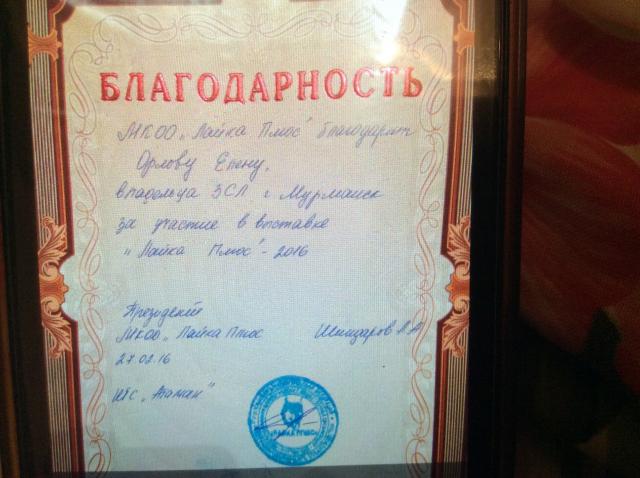 БЛАГОДАРНОСТЬ
МКОО „Лайка Плюс" благодарит
Орлову Елену,
владельца ЗСЛ г. Мурманск
за участие в выставке
„Лайка Плюс" - 2016
Президент
МКОО „Лайка Плюс Шишаров А.А
27.02.16
„Атаман"
ЛАЙКА ПЛЮС